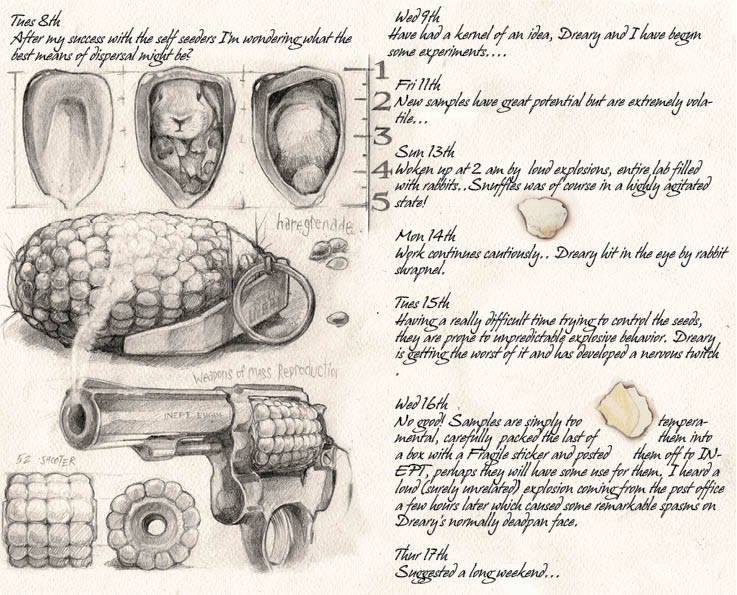 Tues 8th
After my success with the self seeders I'm wondering what the
best means of dispersal might be?
1
2
3
4
5
haregrenade.
weapons of mass Reproduction
INEPT
52 SHOOTER
Wed 9th
Have had a kernel of an idea, Dreary and I have begun
some experiments....
Fri 11th
New samples have great potential but are extremely vola-
tile...
Sun 13th
Woken up at 2 am by loud explosions, entire lab filled
with rabbits..Snuffles was of course in a highly agitated
state!
Mon 14th
Work continues cautiously.. Dreary hit in the eye by rabbit
shrapnel.
Tues 15th
Having a really difficult time trying to control the seeds,
they are prone to unpredictable explosive behavior. Dreary
is getting the worst of it and has developed a nervous twitch
.
Wed 16th
No good! Samples are simply too tempera-
mental, carefully packed the last of them into
a box with a Fragle sticker and posted them off to IN-
EPT, perhaps they will have some use for them. I heard a
loud (surely unrelated) explosion coming from the post office
a few hours later which caused some remarkable spasms on
Dreary's normally deadpan face.
Thur 17th
Suggested a long weekend...